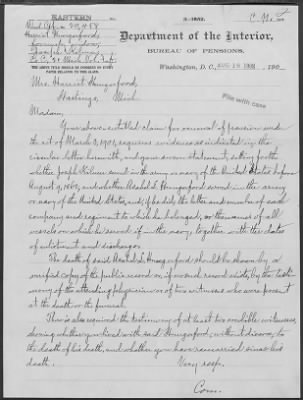 EASTERN
3-1892.
Department of the Interior,
BUREAU OF PENSIONS,
Washington, D. C., AUG 19 1902, 190
Harriet Hungerford,
THE ABOVE TITLE SHOULD BE INDORSED ON EVERY
PAPER RELATING TO THE CLAIM.
File with case
Mrs. Harriet Hungerford,
Hastings, Mich
Madam,
Your above entitled claim for renewal of pension under
the act of March 3, 1901, requires evidence as indicated in the
circular letter herewith, and your sworn statement, setting forth
whether Joseph served in the army or navy of the United States before
August 4, 1862, and whether Hungerford served in the army
or navy of the United States, and, if he did, the letter and number of each
company and regiment to which he belonged, or the names of all
vessels on which he served if in the navy, together with the dates
of enlistment and discharge.
The death of said Hungerford should be shown by a
verified copy of the public record or, if no such record exists, by the testi-
mony of the attending physician or of two witnesses who were present
at the death or the funeral.
There is also required the testimony of at least two credible witnesses,
showing whether you lived with said Hungerford, without divorce, to
the date of his death, and whether you have remarried since his
death.
Very resp.
Com.